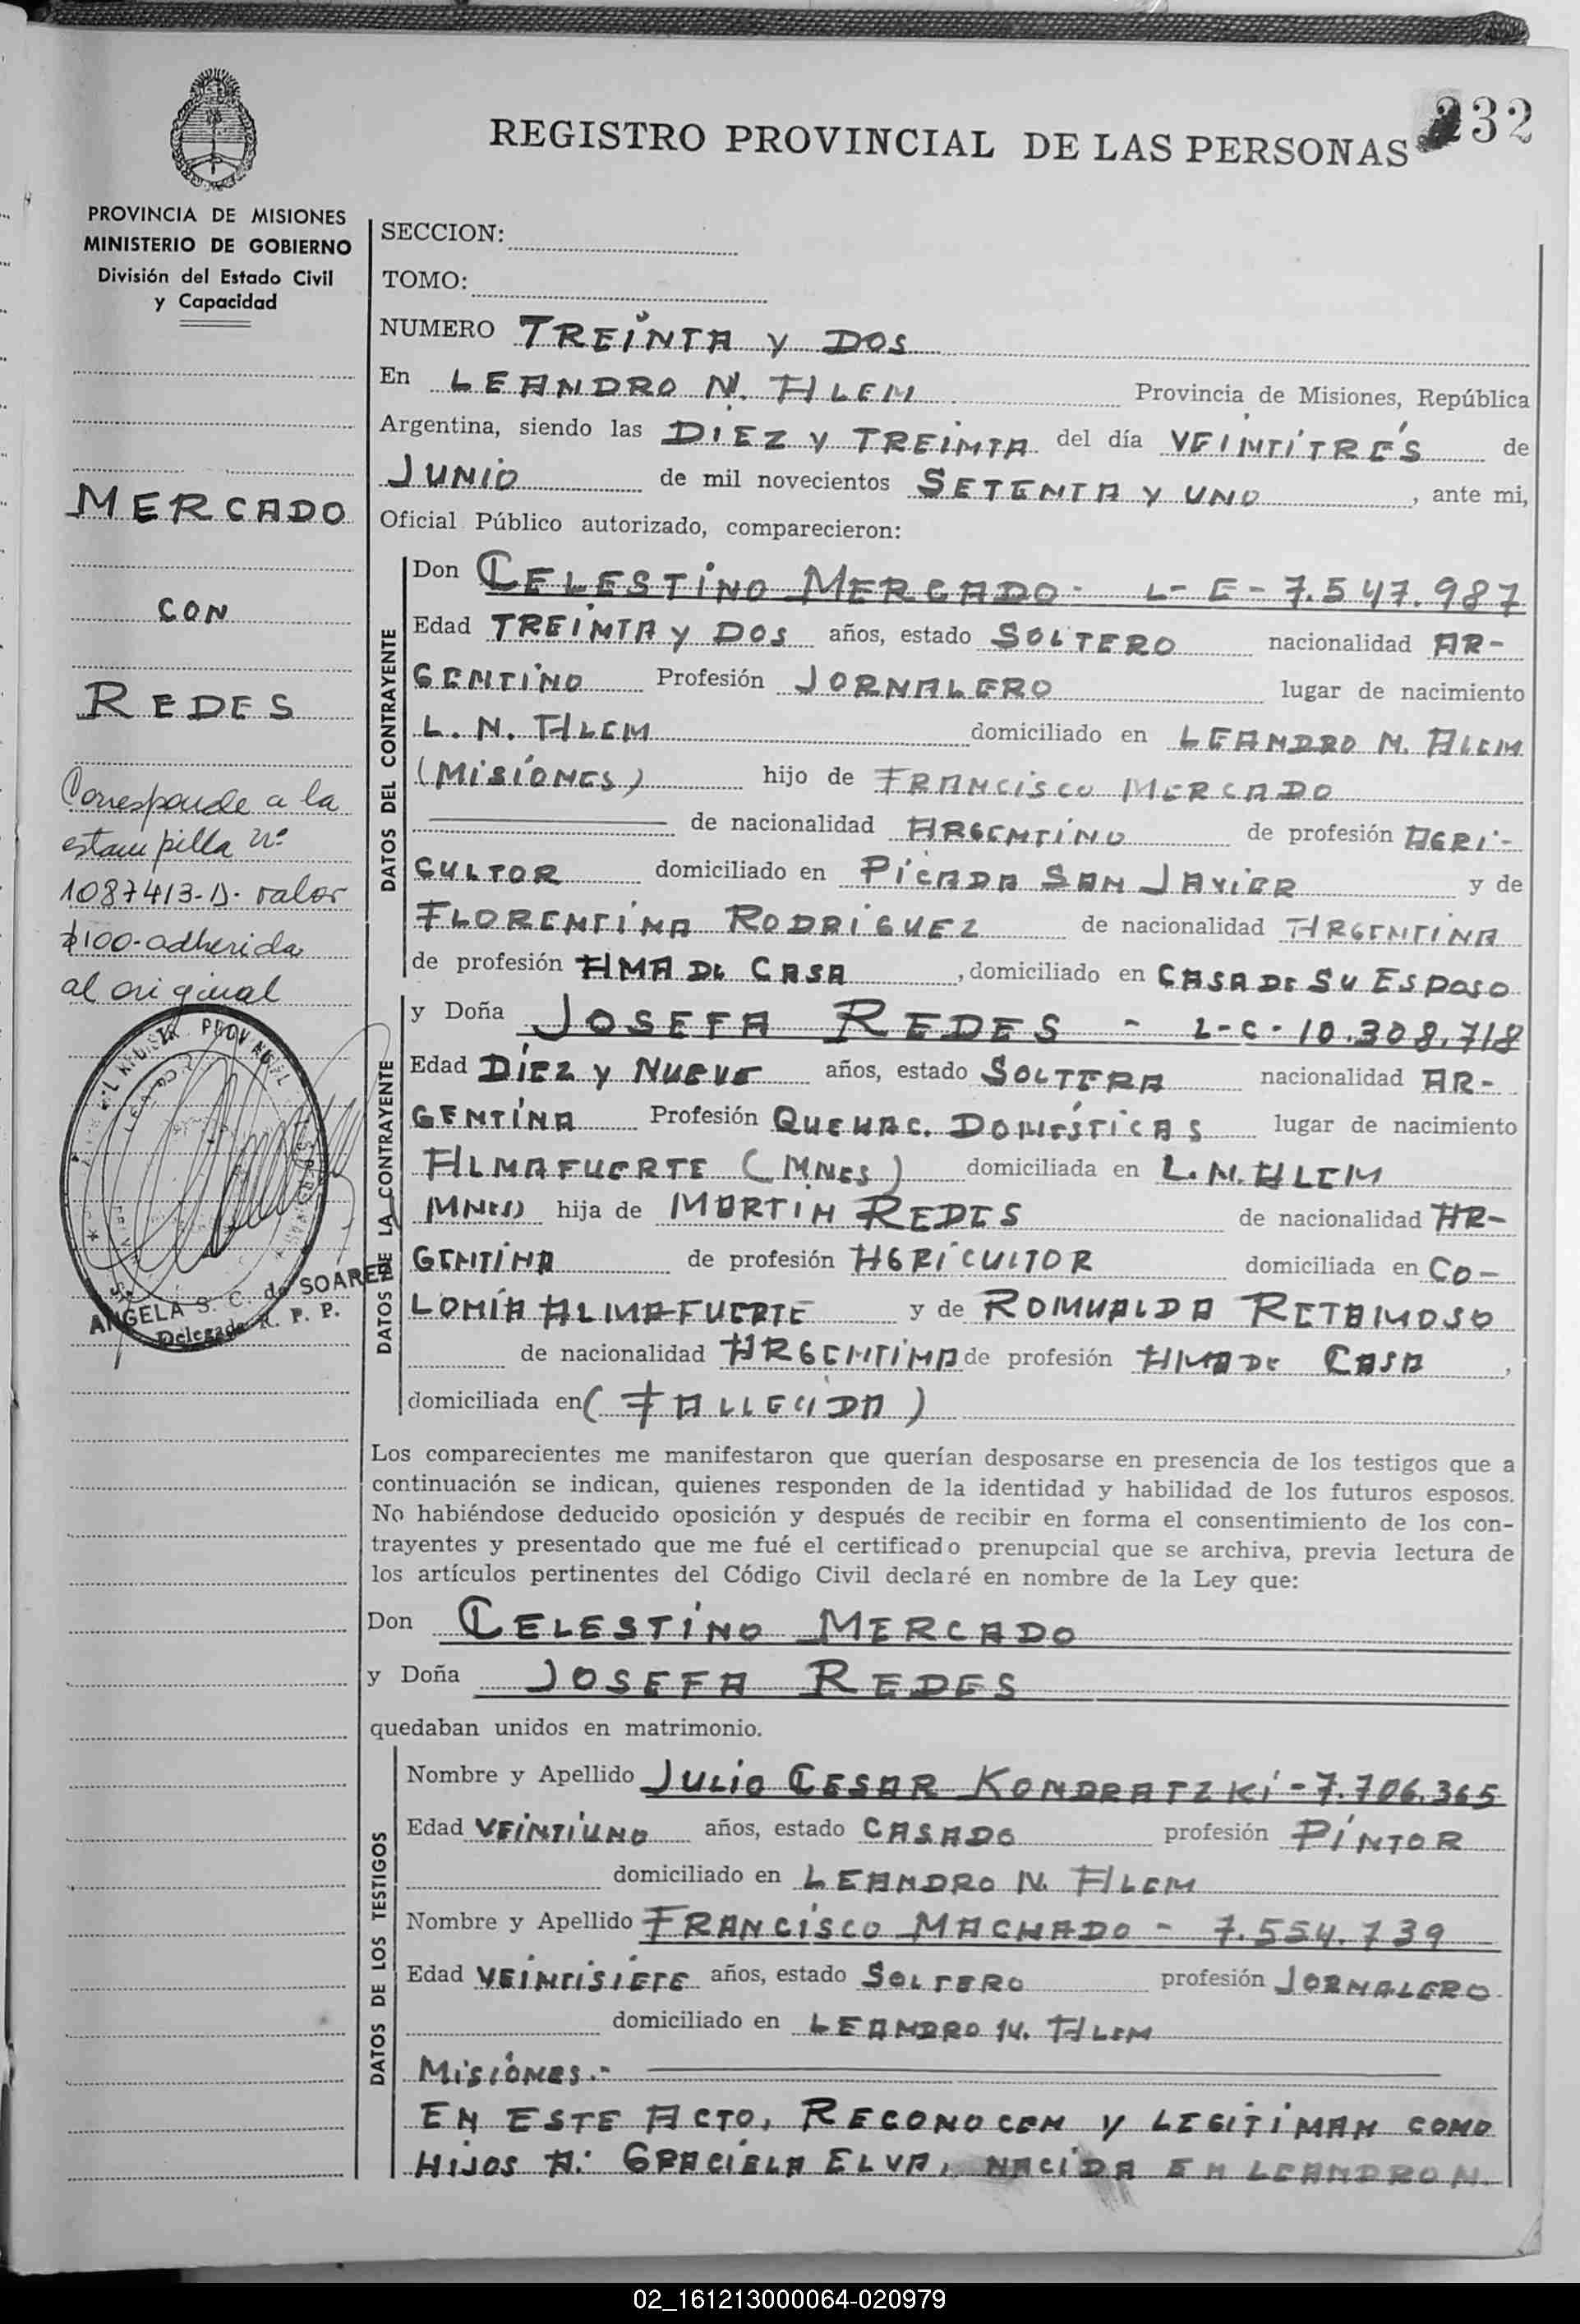 232
REGISTRO PROVINCIAL DE LAS PERSONAS
PROVINCIA DE MISIONES
MINISTERIO DE GOBIERNO
División del Estado Civil
y Capacidad
MERCADO
CON
REDES
Corresponde a la
estampilla nº
1087413-D. valor
$100-adherida
al original
ANGELA S. C. de SOARES
Delegada R. P. P.
SECCION:
TOMO:
NUMERO TREINTA Y DOS
En LEANDRO N. ALEM Provincia de Misiones, República
Argentina, siendo las DIEZ Y TREINTA del día VEINTITRÉS de
JUNIO de mil novecientos SETENTA Y UNO, ante mi,
Oficial Público autorizado, comparecieron:
DATOS DEL CONTRAYENTE
Don CELESTINO MERCADO - L- E - 7.547.987
Edad TREINTA Y DOS años, estado SOLTERO nacionalidad AR-
GENTINO Profesión JORNALERO lugar de nacimiento
L. N. ALEM domiciliado en LEANDRO N. ALEM
(MISIONES) hijo de FRANCISCO MERCADO
de nacionalidad ARGENTINO de profesión AGRI-
CULTOR domiciliado en PICADA SAN JAVIER y de
FLORENTINA RODRIGUEZ de nacionalidad ARGENTINA
de profesión AMA DE CASA, domiciliado en CASA DE SU ESPOSO
DATOS DE LA CONTRAYENTE
y Doña JOSEFA REDES - L-C-10.308.718
Edad DIEZ Y NUEVE años, estado SOLTERA nacionalidad AR-
GENTINA Profesión QUEHAC. DOMÉSTICAS lugar de nacimiento
ALMAFUERTE (MNES) domiciliada en L.N. ALEM
MNES) hija de MARTIN REDES de nacionalidad AR-
GENTINA de profesión AGRICULTOR domiciliada en CO-
LONIA ALMAFUERTE y de ROMUALDA RETAMOSO
de nacionalidad ARGENTINA de profesión AMA DE CASA,
domiciliada en (FALLECIDA)
Los comparecientes me manifestaron que querían desposarse en presencia de los testigos que a
continuación se indican, quienes responden de la identidad y habilidad de los futuros esposos.
No habiéndose deducido oposición y después de recibir en forma el consentimiento de los con-
trayentes y presentado que me fué el certificado prenupcial que se archiva, previa lectura de
los artículos pertinentes del Código Civil declaré en nombre de la Ley que:
Don CELESTINO MERCADO
y Doña JOSEFA REDES
quedaban unidos en matrimonio.
DATOS DE LOS TESTIGOS
Nombre y Apellido JULIO CESAR KONDRATZKI - 7.706.365
Edad VEINTIUNO años, estado CASADO profesión PINTOR
domiciliado en LEANDRO N. ALEM
Nombre y Apellido FRANCISCO MACHADO - 7.554.739
Edad VEINTISIETE años, estado SOLTERO profesión JORNALERO
domiciliado en LEANDRO N. ALEM
MISIONES.-
EN ESTE ACTO, RECONOCEN Y LEGITIMAN COMO
HIJOS A: GRACIELA ELVA, NACIDA EN LEANDRO N.
02_161213000064-020979